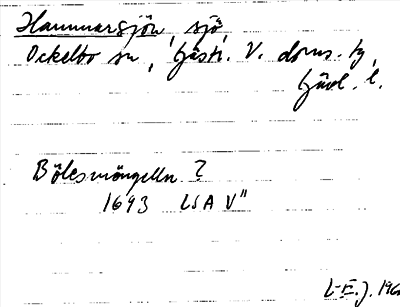 Hammarsjön, sjö,
Ockelbo sn, Gästr. V. doms. tg,
Gävl. l.
Bölesmöngelln ?
1693 LSA V"
L-E. J. 196